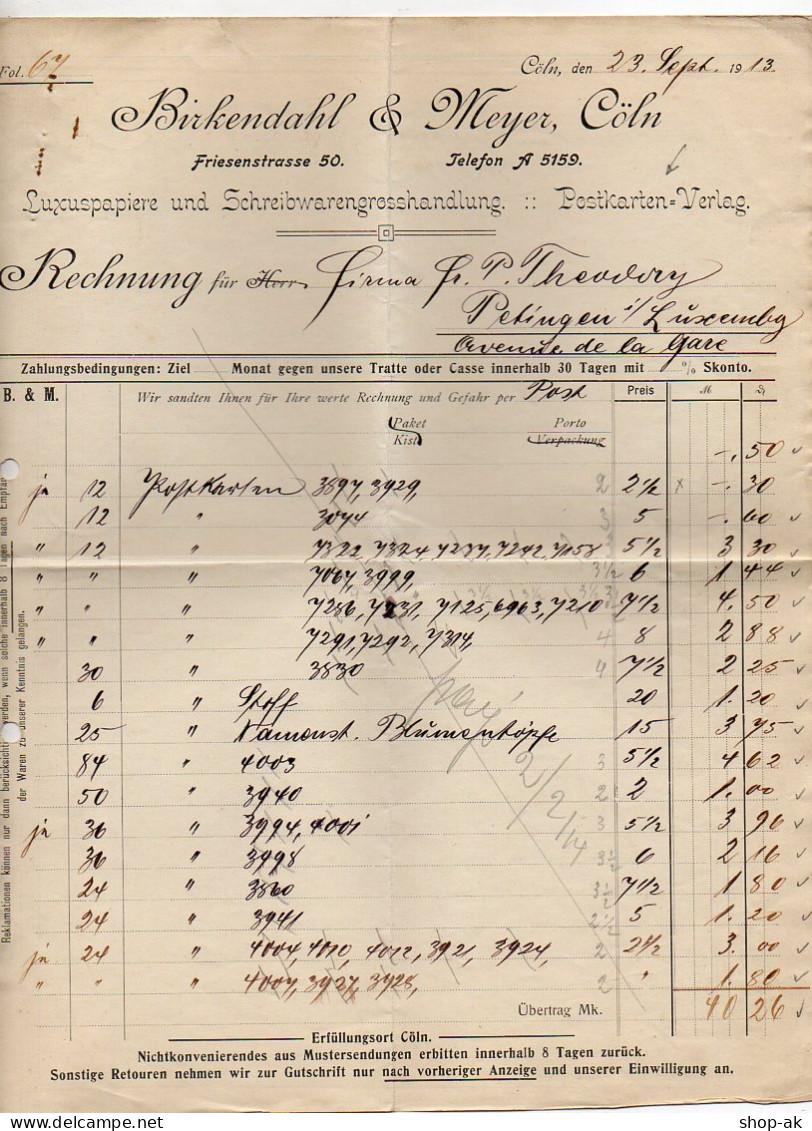 Fol. 67
Cöln, den 23. Sept. 1913.
Birkendahl & Meyer, Cöln
Friesenstrasse 50. Telefon A 5159.
Luxuspapiere und Schreibwarengrosshandlung. :: Postkarten=Verlag.
Rechnung für Herrn Firma Fr. P. Theodory
Petingen i/ Luxembg
Avenue de la Gare
Zahlungsbedingungen: Ziel Monat gegen unsere Tratte oder Casse innerhalb 30 Tagen mit % Skonto.
B. & M. Wir sandten Ihnen für Ihre werte Rechnung und Gefahr per Post Preis M
Paket Porto
Kiste Verpackung -. 50
je 12 Postkarten 3897, 3929, 2 2 1/2 x -. 30
12 " 3074 3 5 -. 60
" 12 " 7322, 7324, 7237, 7242, 7158 5 1/2 3 30
" " " 7067, 3999, 3 1/2 6 1 44
" " " 7286, 7231, 7125, 6963, 7210 7 1/2 4. 50
" " " 7291, 7292, 7314, 4 8 2 88
30 " 3830 4 7 1/2 2 25
6 " Stoff 20 1. 20
25 " Namenst. Blumentöpfe 15 3 75
84 " 4003 3 5 1/2 4 62
50 " 3940 2 2 1. 00
je 36 " 3994, 4001 3 5 1/2 3 96
36 " 3998 3 1/2 6 2 16
24 " 3860 3 1/2 7 1/2 1 80
24 " 3941 2 1/2 5 1. 20
je 24 " 4004, 4010, 4012, 3921, 3924, 2 2 1/2 3. 00
" " " 4007, 3927, 3928, 2 " 1. 80
Übertrag Mk. 40 26
2/2/14
Erfüllungsort Cöln.
Nichtkonvenierendes aus Mustersendungen erbitten innerhalb 8 Tagen zurück.
Sonstige Retouren nehmen wir zur Gutschrift nur nach vorheriger Anzeige und unserer Einwilligung an.
Reklamationen können nur dann berücksichtigt werden, wenn solche innerhalb 8 Tagen nach Empfang
der Waren zu unserer Kenntnis gelangen.
shop-ak